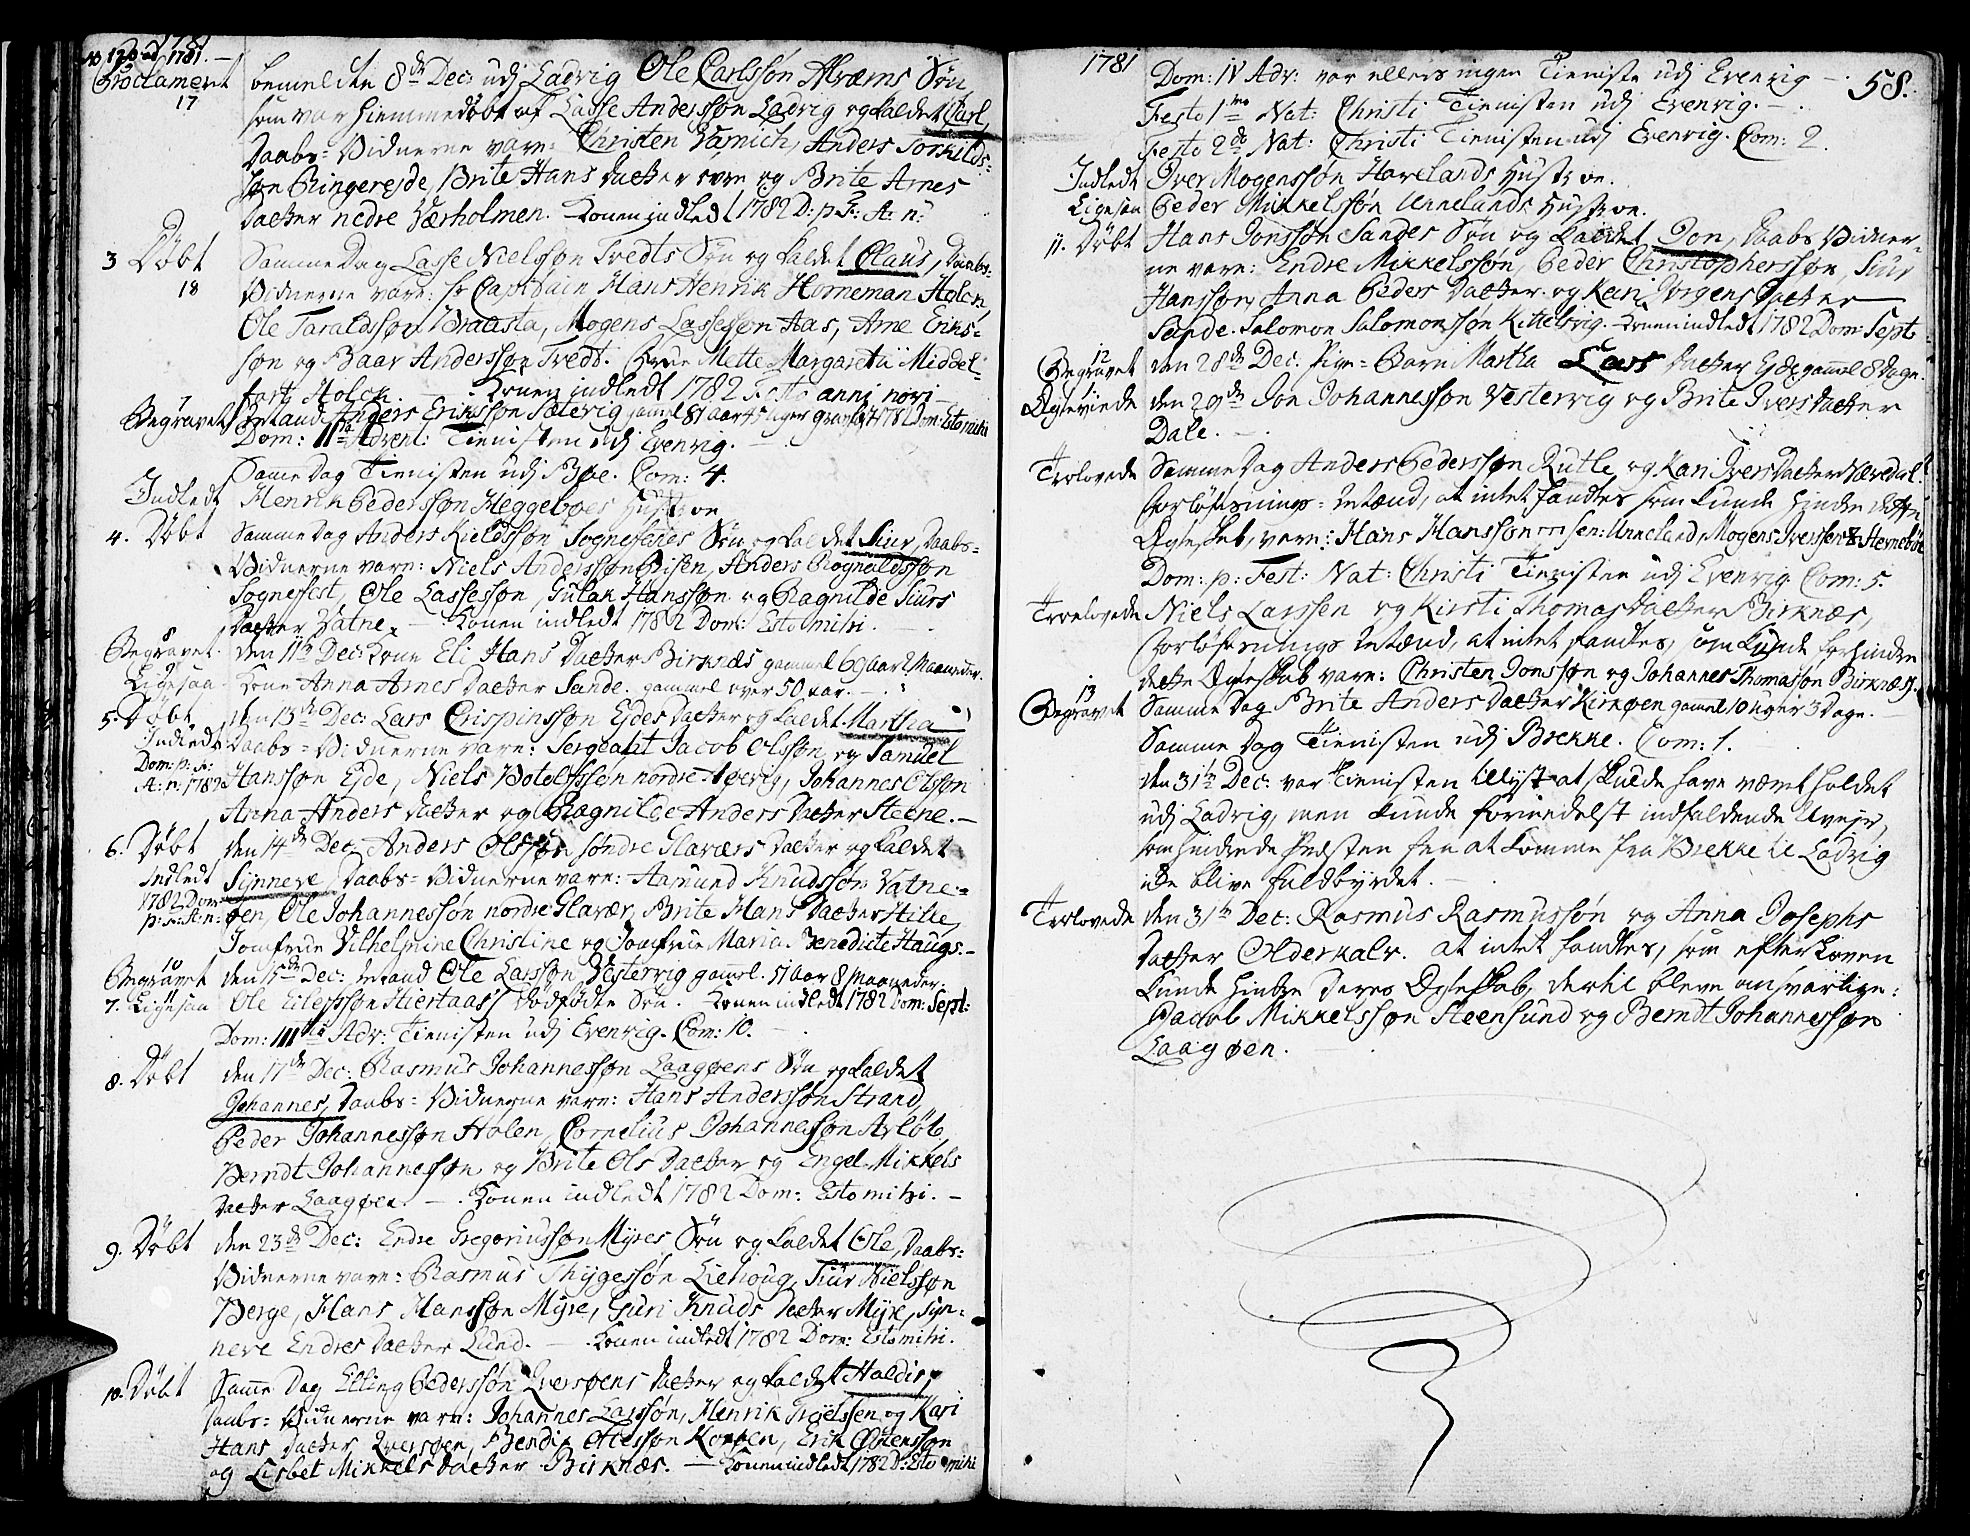 1781.
Proclameret bemeldte 8de Dec: udj Ladvig Ole Carlssøn Aræms Søn
17 som var hiemmedøbt af Lasse Anderssøn Ladvig og kaldet Carl,
Daabs-Vidnerne vare: Christen Værnich, Anders Torkilds-
søn Ringereyde, Brite Hans Datter øvre og Brite Arnes
Datter nedre Værholmen. Konen indledt 1782 D: p: F: A: n:
3 Døbt Samme Dag Lasse Nielssøn Tredts Søn og kaldet Claus, Daabs-
18 Vidnerne vare: hr Capitain Hans Henrik Horneman Holen,
Ole Taraldssøn Braasta, Mogens Lassesøn Aas, Arne Eriks-
søn og Baar Anderssøn Tredt. Frue Mette Margareta Middel-
fart Holen. Konen indledt 1782 Festo anni novi
7 Begravet Anders Erikssøn Sælevig gamel 81 aar 4 uger 1782 Dom: Estomihi
Dom: II Advent: Tienisten udj Evenvig.
Same Dag Tienisten udj Bøe. Com: 4.
Indledt Henrik Pederssøn Heggeboes Hustroe
4. Døbt Samme Dag Anders Kieldssøn Sognefestes Søn og kaldet Siur, Daabs-
Vidnerne vare: Niels Anderssøn Risen, Anders Rognaldssøn
Sognefest, Ole Lassesøn, Gulak Hanssøn og Ragnilde Siurs
Datter Vatne. — Konen indledt 1782 Dom: Estomihi.
8 Begravet. den 11te Dec: Kone Eli Hans Datter Birknæs gammel 69 aar 2 Maaneder.
Ligesaa Kone Anna Arnes Datter Sande. gammel over 50 aar.
5. Døbt den 13de Dec: Lars Crispinssøn Ejdes Datter og kaldet Martha
Indledt Daabs-Vidnerne vare: Sergeant Jacob Olssøn, og Samuel
Dom: p: F:
A: n: 1782 Hanssøn Ejde, Niels Botolfssøn nordre Høevig, Johannes Olssøn
Anna Anders Datter og Ragnilde Anders Datter Steene.
6. Døbt den 14de Dec: Anders Olssøn søndre Glaværs Datter og kaldet
Indledt Synneve, Daabs-Vidnerne vare: Aamund Knudssøn Vatne-
1782 Dom
p: F: A: n: øen, Ole Johannessøn nordre Glavær, Brite Hans Datter Hille,
Jomfrue Vilhelmine Christine og Jomfrue Maria Benedicte Haugs.
10 Begravet den 15de Dec: Ole Larssøn Vestervig gamel. 51 aar 8 Maaneder.
7. Ligesaa Ole Eilefssøn Hiertaas's Dødfødte Søn. Konen indledt 1782 Dom: Sept:
Dom: III Adv: Tienisten udj Evenvig. Com: 10.
8. Døbt den 17de Dec: Rasmus Johannessøn Laagøens Søn og kaldet
Johannes, Daabs-Vidnerne vare: Hans Anderssøn Strand,
Peder Johannessøn Holen, Cornelius Johannessøn Avløb,
Berndt Johannessøn og Brite Ols Datter og Engel Mikkels
Datter Laagøen. —. Konen indledt 1782 Dom: Estomihi. —
9. Døbt den 23de Dec: Endre Gregoriussøn Myres Søn og kaldet Ole, Daabs-
Vidnerne vare: Rasmus Thygessøn Liehoug, Siur Nielssøn
Berge, Hans Hanssøn Myre, Guri Knuds Datter Myre, Syn-
neve Endres Datter Lund. — Konen indledt 1782 Dom: Estomihi.
10. Døbt Samme Dag Elling Pederssøn Qversøens Datter og kaldet Haldis,
Daabs-Vidnerne vare: Johannes Larssøn, Henrik og Kari
Hans Datter Qversøen, Bendix Korsøen, Erik
og Lisbet Mikkels Datter Birknæs. — Konen indledt 1782 D: Estomihi
1781 58.
Dom: IV Adv: var ellers ingen Tieniste udj Evenvig —.
Festo 1mo Nat: Christi Tienisten udj Evenvig. —.
Festo 2do Nat: Christi Tienisten udj Evenvig. Com: 2.
Indledt Iver Mogenssøn Havelands Hustroe.
Ligesaa Peder Mikkelssøn Unnelands Hustroe.
11. Døbt Hans Jonssøn Sandes Søn og kaldet Jon, Daabs Vidner-
ne vare: Endre Mikkelssøn, Peder Christopherssøn, Siur
Hanssøn, Anna Peders Datter og Kari Jørgens Datter
Sande. Salomon Salomonssøn Kittelsvig. Konen indledt 1782 Dom: Sept
12 Begravet den 28de Dec: Pige-Barn Martha Lars Datter Ejde gamel 8 dage.
Ægteviede den 29de Jon Johannessøn Vestervig og Brite Ivers Datter
Dale.
Trolovede Samme Dag Anders Pederssøn Rutle og Kari Ivers Datter Nævedal.
Forløfnings- at intet fandtes som kunde hindre dette
Ægteskab, vare: Hans Hanssøn Unneland, Mogens Iverssøn Hernebøe
Dom: p: Fest: Nat: Christi Tienisten udj Evenvig Com: 5.
Troelovede Niels Larssen og Kirsti Thomas Datter Birknæs,
Forløfnings at intet fandtes, som kunde forhindre
dette Ægteskab vare: Christen Jonssøn og Johannes Thomassøn Birknæs.
13 Begravet Samme Dag Brite Anders Datter Kirkøen gamel 10 uger 3 Dage.
Samme Dag Tienisten udj Brekke. Com: 1.
den 31te Dec: var Tienisten tillyst at skulde have været holdet
udj Ladvig, men kunde formedelst indfaldende Uvejr,
som hindrede Præsten fra at komme fra Brekke til Ladvig
ikke blive fuldbyrdet.
Trolovede den 31te Dec: Rasmus Rasmussøn og Anna Josephs
Datter Olderkalv. at intet fandtes, som efter Loven
kunde hindre deres Ægteskab, dertil bleve ansvarlige:
Jacob Mikkelssøn Steensund og Berndt Johannessøn
Laagøen.